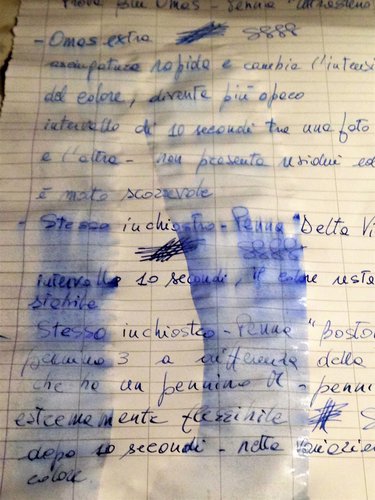 Prova ... Omas - Penna "
- Omas extra 8888
asciugatura rapida e cambia l'intensi
del colore, diventa più opaco
intervallo di 10 secondi tra una foto
e l'altra - non presenta residui ed
è molto scorrevole
- Stesso inchiostro - Penna "Delta Vi
8888
intervallo 10 secondi, il colore resta
stabile
- Stesso inchiostro - Penna "Boston
pennino 3 a differenza della
che ha un pennino M - penni
estremamente flessibile S
dopo 10 secondi - netta variazion
colore.